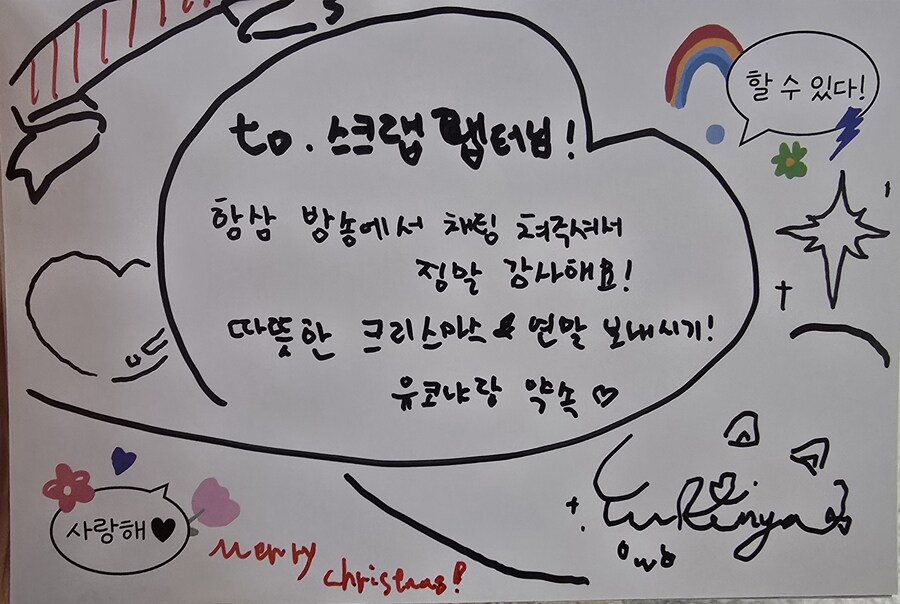 할 수 있다!
to. 스크랩 랩터님!
항상 방송에서 채팅 쳐주셔서
정말 감사해요!
따뜻한 크리스마스 & 연말 보내시기!
유코냐랑 약속 ♡
사랑해♥
Merry
christmas!
owo